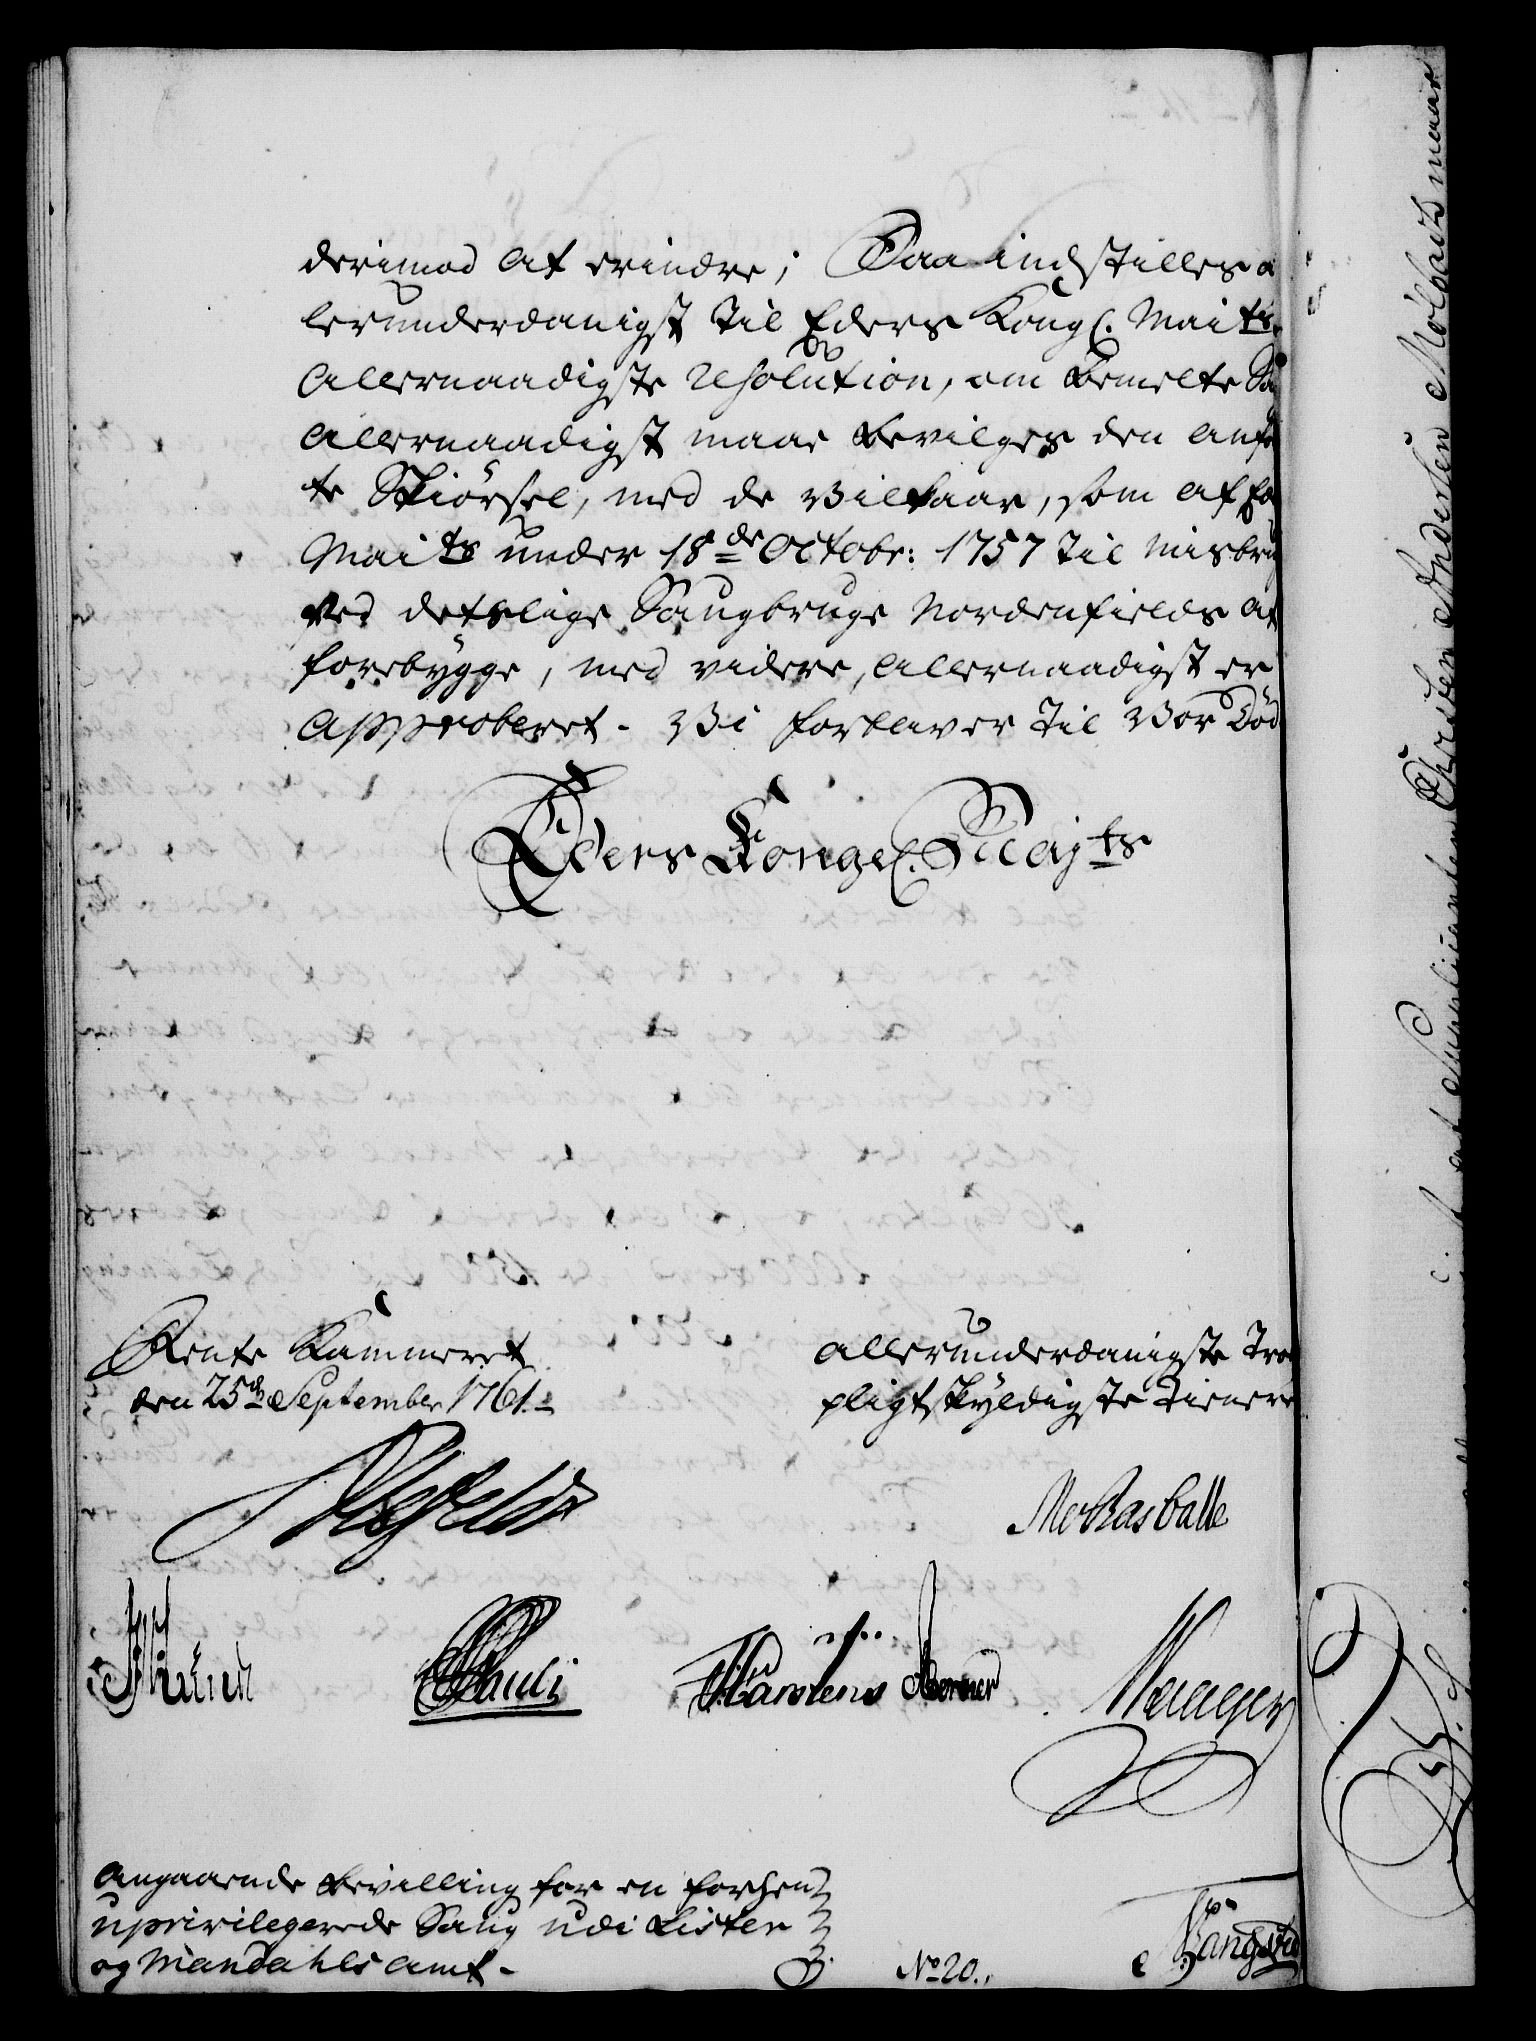 derimod at erindre; Saa indstilles a
lerunderdanigst til Eders Kongl. Maits
Allernaadigste Resolution, om bemelte Sa
Allernaadigst maae bevilges den anfø
te Skiørsel, med de Vilkaar, som af Ed
Maits under 18de Octobr: 1757 til Misbru
ved deslige Saugbruge Nordenfields at
forebygge, med videre, allernaadigst er
approberet. Vi forbliver til Vor Død
Eders Kongel. Majts
Rente Kammeret
den 25de September 1761.
allerunderdanigste Tro
pligtskyldigste Tienere
Pauli
Carstens
angaaende Bevilling for en forhen
uprivilegerede Saug udi Lister
og Mandahls amt.
No 20.
Supplicanten Christen Andersen Molbach maae